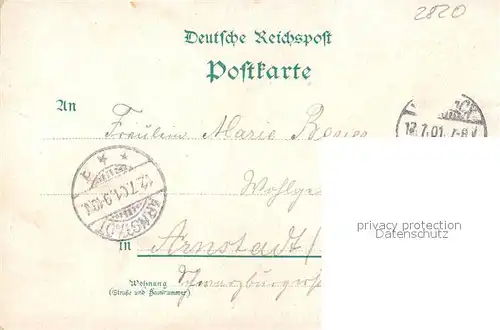 2820
Deutsche Reichspost
Postkarte
An
Fräulein Marie
12.7.01. 7-8V
12.7.01.9-10V.
ARNSTADT
privacy protection
Datenschutz
in Arnstadt
Wohnung
(Straße und Hausnummer)